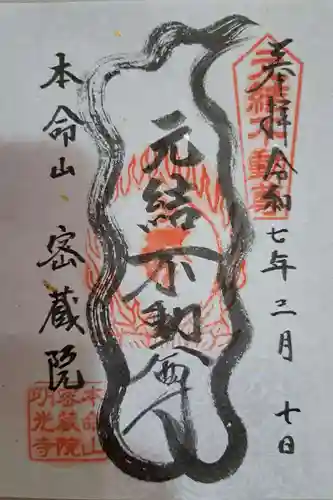 奉拝 令和七年三月十日
元結不動尊
本命山 密蔵院
元結不動尊
本命山
密蔵院
明光寺